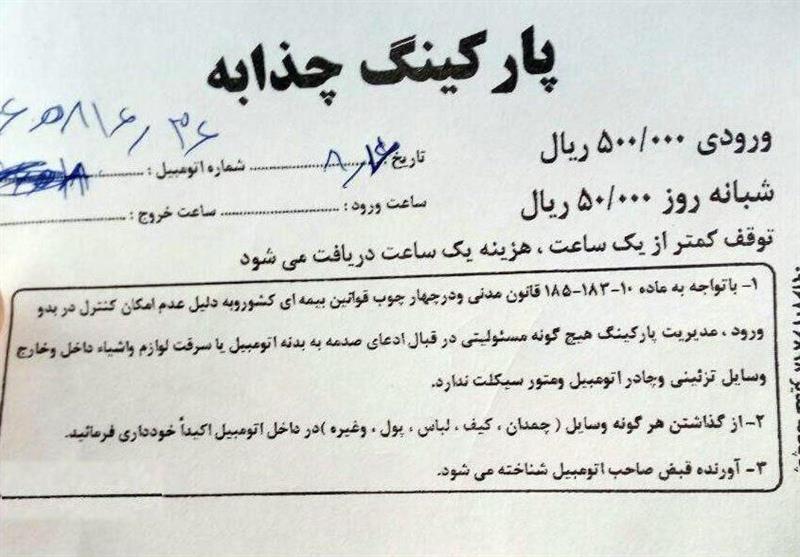 پارکینگ چذابه
ورودی ۵۰۰/۰۰۰ ریال
شبانه روز ۵۰/۰۰۰ ریال
تاریخ : ........ شماره اتومبیل : ........
ساعت ورود : ........ ساعت خروج : ........
توقف کمتر از یک ساعت ، هزینه یک ساعت دریافت می شود
۱- باتواجه به ماده ۱۰-۱۸۳-۱۸۵ قانون مدنی ودرچهار چوب قوانین بیمه ای کشوروبه دلیل عدم امکان کنترل در بدو
ورود ، مدیریت پارکینگ هیچ گونه مسئولیتی در قبال ادعای صدمه به بدنه اتومبیل یا سرقت لوازم واشیاء داخل وخارج
وسایل تزئینی وچادر اتومبیل ومتور سیکلت ندارد.
۲-از گذاشتن هر گونه وسایل ( چمدان ، کیف ، لباس ، پول ، وغیره )در داخل اتومبیل اکیداً خودداری فرمائید.
۳- آورنده قبض صاحب اتومبیل شناخته می شود.